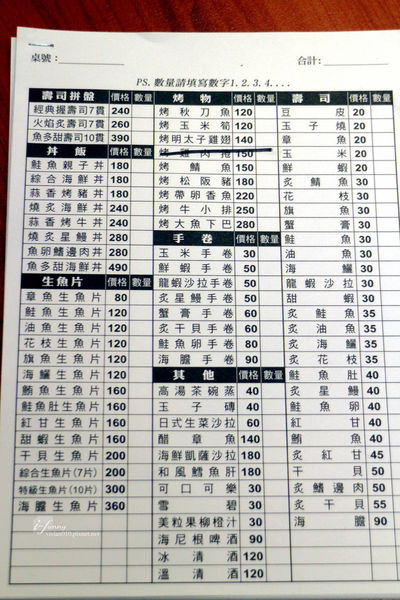 桌號：
合計：
PS. 數量請填寫數字1. 2. 3. 4. . . .
壽司拼盤 價格 數量
經典握壽司7貫 240
火焰炙壽司7貫 260
魚多甜壽司10貫 390
丼飯 價格 數量
鮭魚親子丼 180
綜合海鮮丼 180
蒜香烤豬丼 180
燒炙海鮮丼 240
蒜香烤牛丼 240
燒炙星鰻丼 280
魚卵鰭邊肉丼 280
魚多甜海鮮丼 490
生魚片 價格 數量
章魚生魚片 80
鮭魚生魚片 120
油魚生魚片 120
花枝生魚片 120
旗魚生魚片 120
海鱺生魚片 160
鮪魚生魚片 160
鮭魚肚生魚片 160
紅甘生魚片 160
甜蝦生魚片 160
干貝生魚片 200
綜合生魚片(7片) 200
特級生魚片(10片) 300
海膽生魚片 360
烤物 價格 數量
烤秋刀魚 120
烤玉米筍 120
烤明太子雞翅 140
烤雞肉捲 150
烤鯖魚 150
烤松阪豬 180
烤帶卵香魚 220
烤牛小排 250
烤大魚下巴 280
手卷 價格 數量
玉米手卷 30
鮮蝦手卷 50
龍蝦沙拉手卷 50
炙星鰻手卷 50
蟹膏手卷 60
炙干貝手卷 60
鮭魚卵手卷 80
海膽手卷 90
其他 價格 數量
高湯茶碗蒸 40
玉子磚 40
日式生菜沙拉 60
醋章魚 140
海鮮凱薩沙拉 150
和風鱈魚肝 180
可口可樂 30
雪碧 30
美粒果柳橙汁 30
海尼根啤酒 90
冰清酒 120
溫清酒 120
壽司 價格 數量
豆皮 20
玉子燒 20
章魚 20
玉米 20
鮮蝦 20
炙鯖魚 30
花枝 30
旗魚 30
蟹膏 30
鮭魚 30
油魚 30
海鱺 30
龍蝦沙拉 30
甜蝦 30
炙鮭魚 35
炙油魚 35
炙海鱺 35
炙花枝 35
鮭魚肚 40
炙星鰻 40
鮭魚卵 40
紅甘 40
鮪魚 40
炙紅甘 45
干貝 50
炙鰭邊肉 50
炙干貝 55
海膽 90
vivian010.pixnet.net